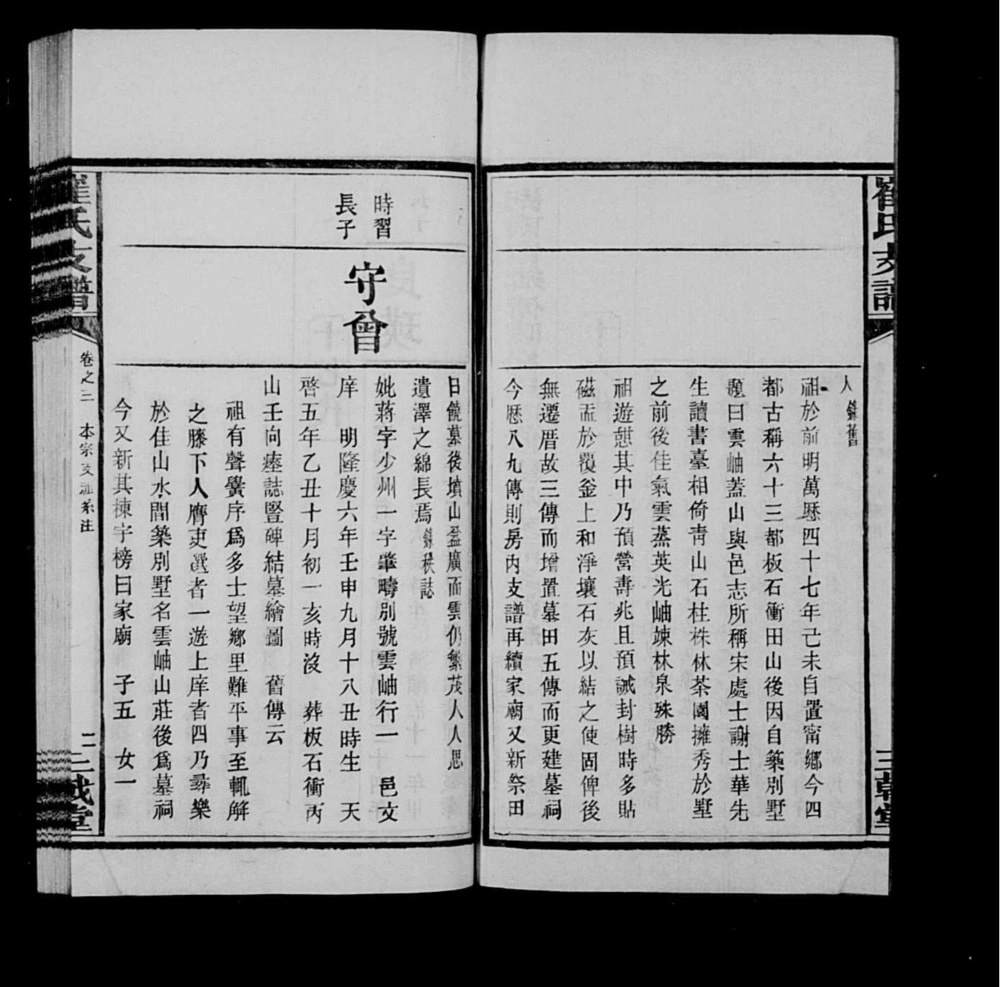 崔氏支譜
人
錄舊
祖於前明萬厯四十七年己未自置甯鄉今四
都古稱六十三都板石衝田山後因自築別墅
題曰雲岫蓋山與邑志所稱宋處士謝士華先
生讀書臺相倚靑山石柱株林茶園擁秀於墅
之前後佳氣雲蒸英光岫竦林泉殊勝
祖遊憩其中乃預營壽兆且預誡封樹時多貼
磁盂於覆釜上和淨壤石灰以結之使固俾後
無遷厝故三傳而增置墓田五傳而更建墓祠
今厯八九傳則房内支譜再續家廟又新祭田
日饒墓後墳山益廣而雲仍繁茂人人思
遺澤之綿長焉
錄秩誌
時習
長子
守曾
妣蔣字少州一字肇疇別號雲岫行一　邑文
庠　明隆慶六年壬申九月十八丑時生　天
啓五年乙丑十月初一亥時沒　葬板石衝丙
山壬向瘞誌豎碑結墓繪圖　舊傳云
祖有聲黌序爲多士望鄉里難平事至輒解
之膝下人膺吏選者一遊上庠者四乃尋樂
於佳山水間築別墅名雲岫山莊後爲墓祠
今又新其棟宇榜曰家廟　子五　女一
崔氏支譜
卷之三　本宗支派系注
二